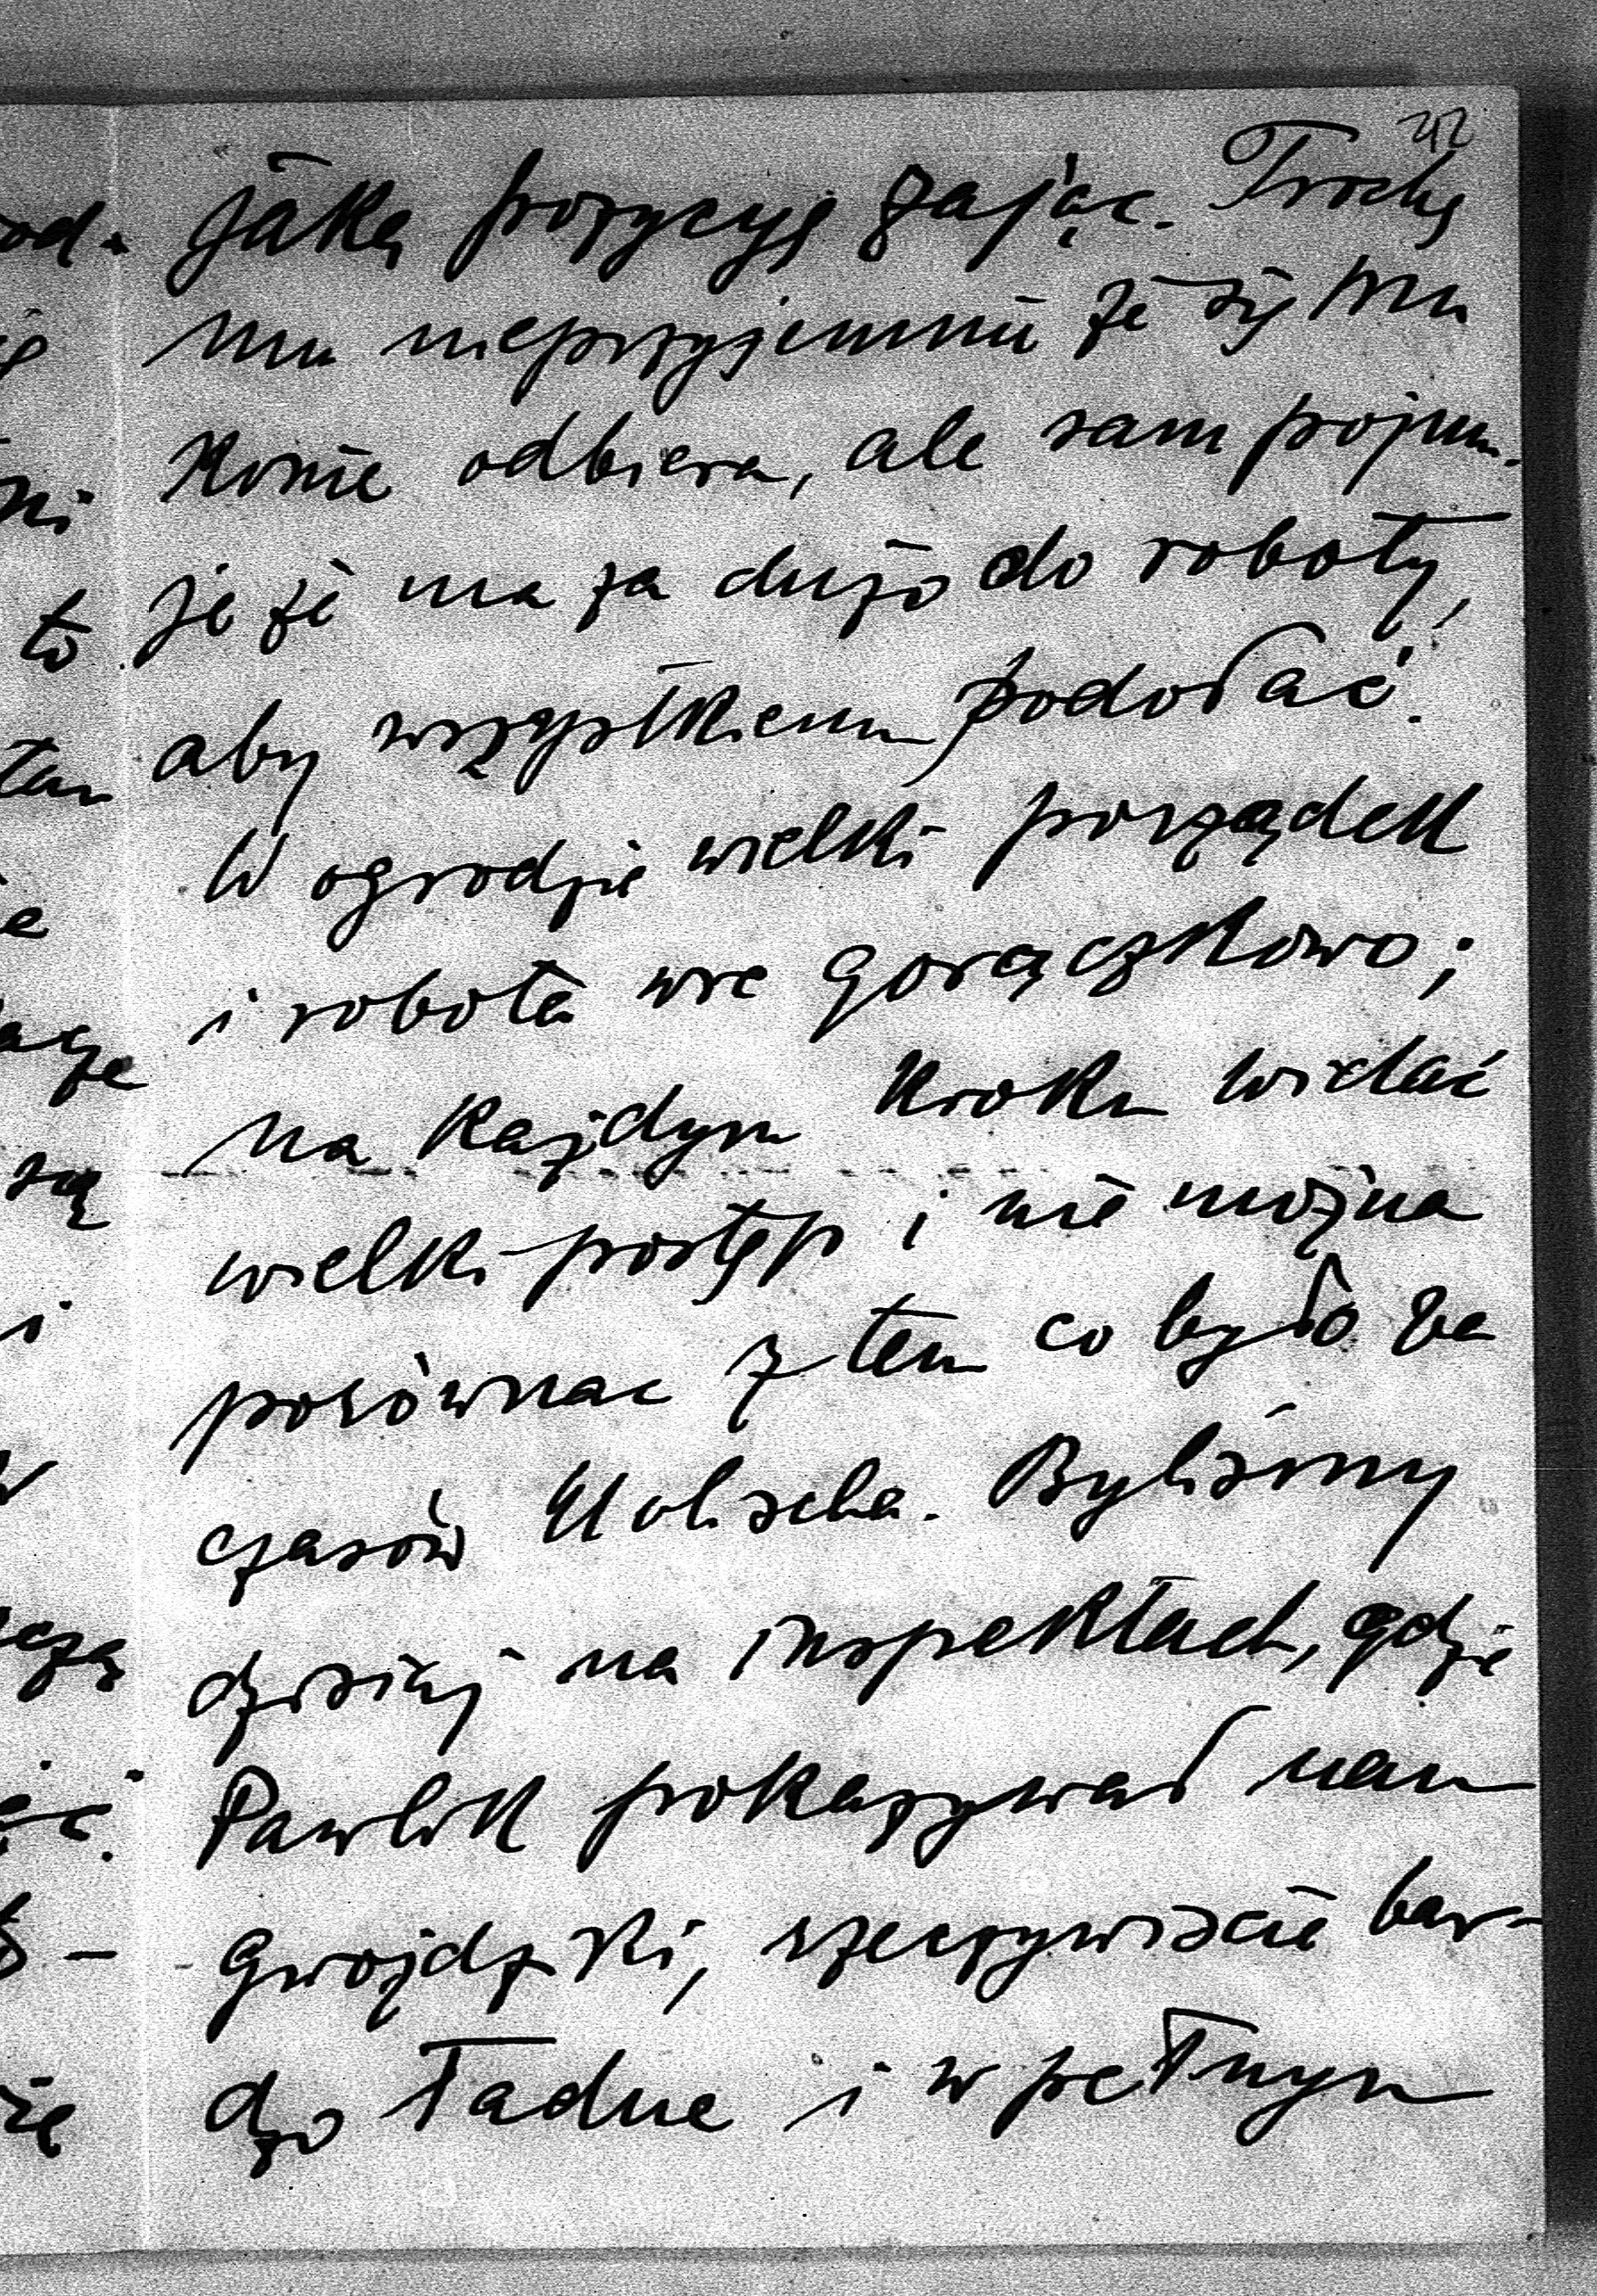 42
jaką pozycyę zająć. Trochę
mu nieprzyjemnie że się mu
konie odbiera, ale sam pojmu-
je że ma za dużo do roboty,
aby wszystkiem podołać.
W ogrodzie wielki porządek
i robota wre gorączkowo;
na każdym kroku widać
wielki postęp i nie można
porównać z tem co było za
czasów Holischa. Byliśmy
dzisiaj na inspektach, gdzie
Pawlik pokazywał nam
gwoździki, rzeczywiście bar-
dzo ładne i w pełnym